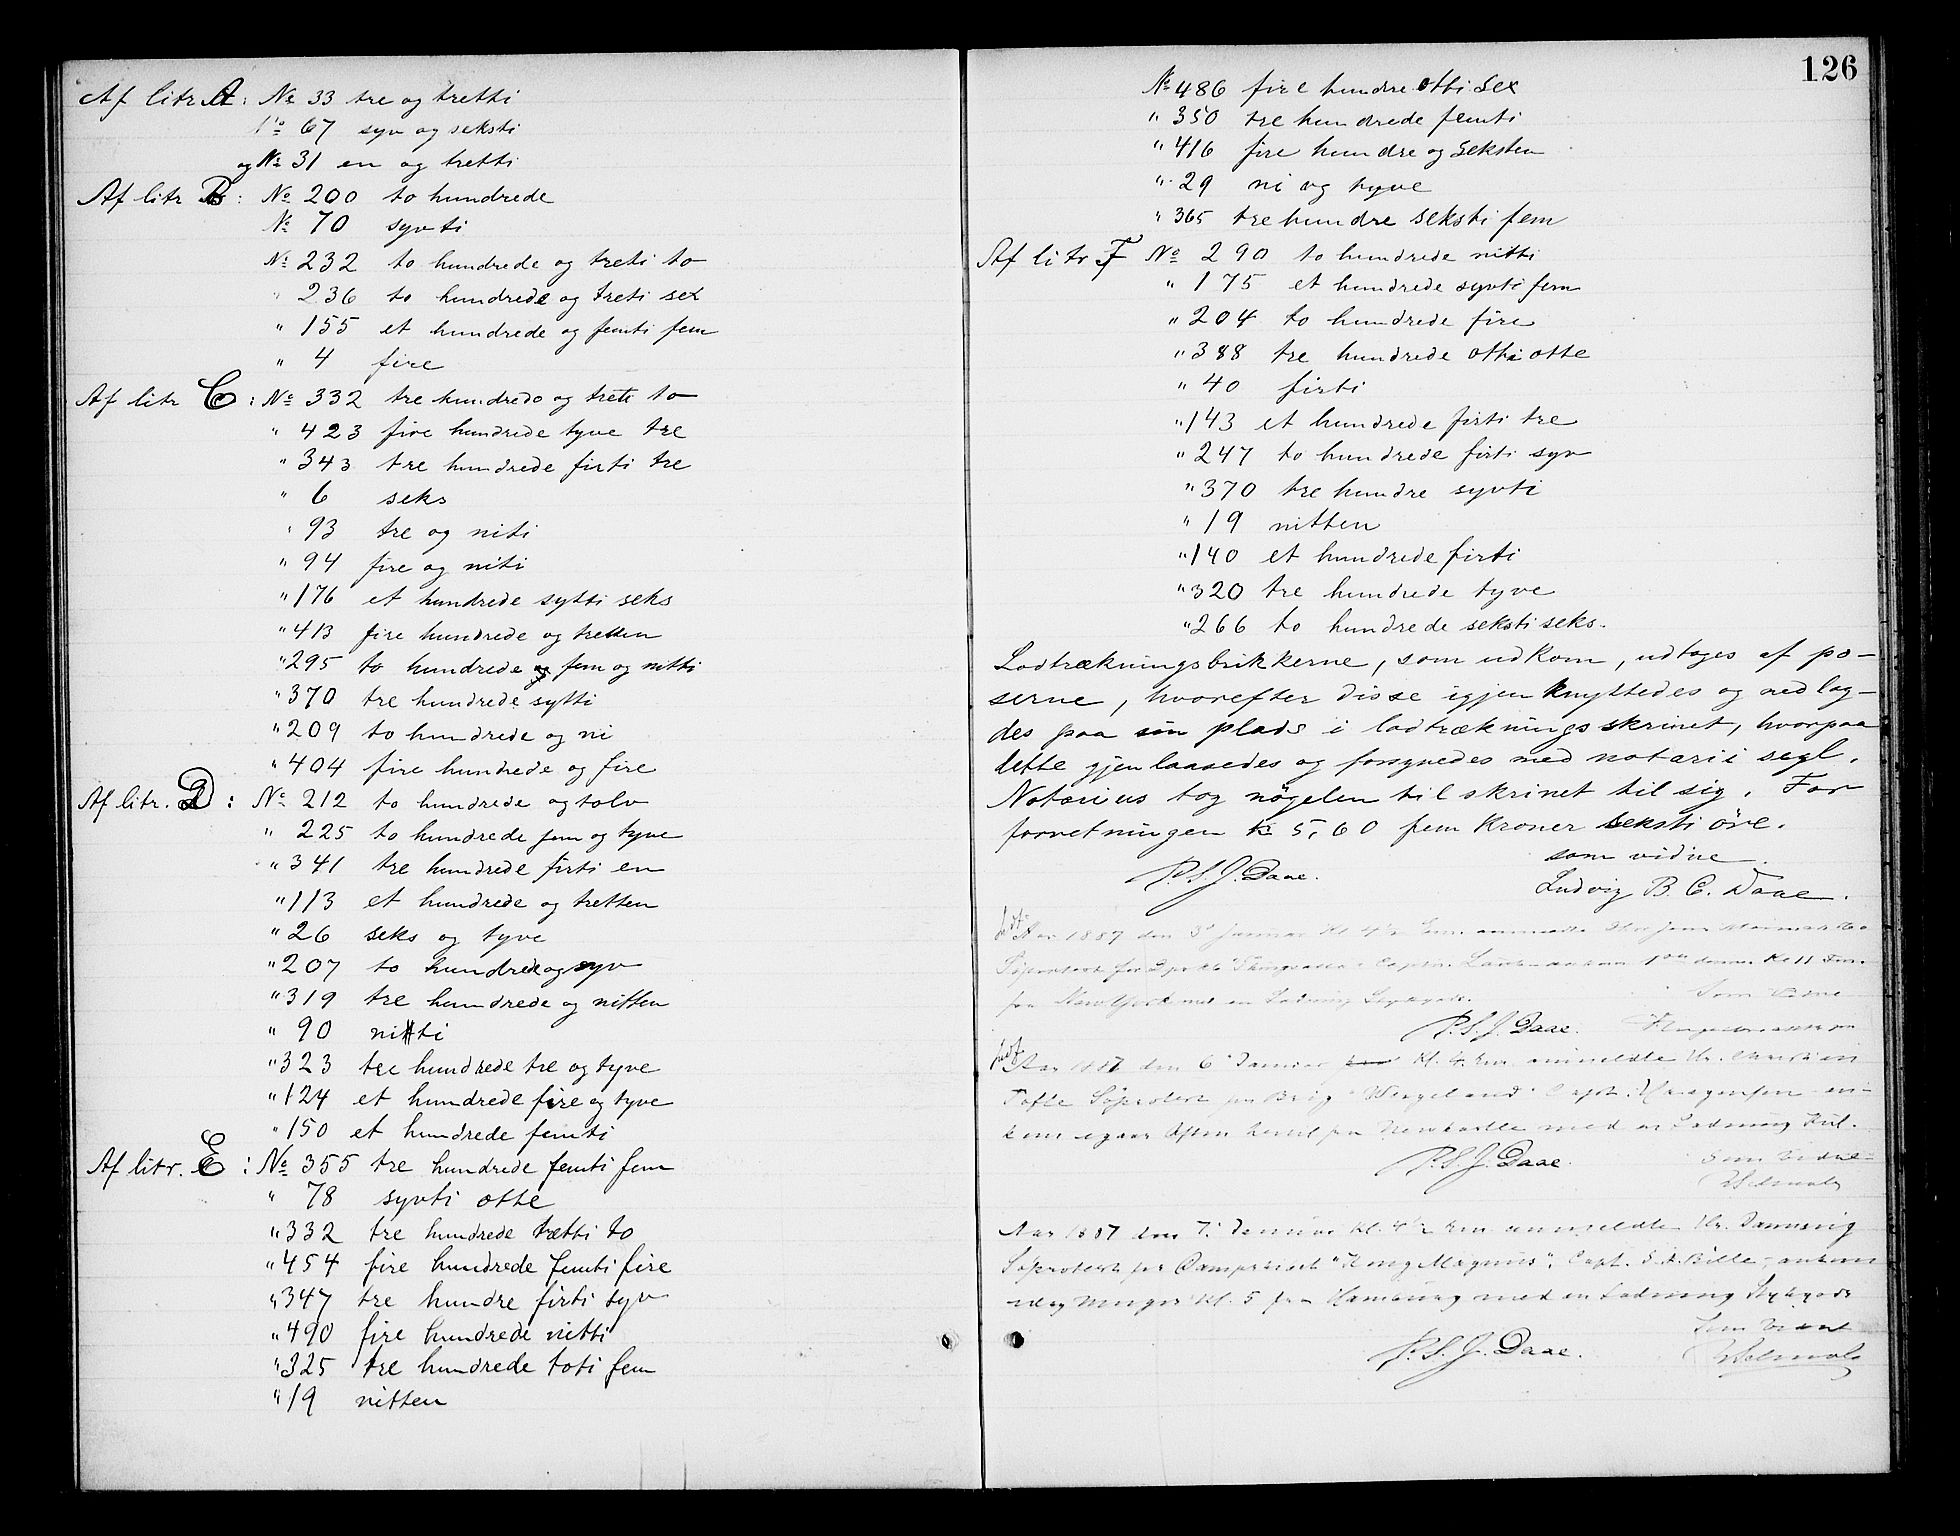 Af litr. A: No 33 tre og tretti
No 67 syv og seksti
og No 31 en og tretti
Af litr B: No 200 to hundrede
No 70 syvti
No 232 to hundrede og treti to
" 236 to hundrede og treti sex
" 155 et hundrede og femti fem
" 4 fire
Af litr C: No 332 tre hundrede og treti to
" 423 fire hundrede tyve tre
" 343 tre hundrede firti tre
" 6 seks
" 93 tre og niti
" 94 fire og niti
" 176 et hundrede sytti seks
" 413 fire hundrede og tretten
" 295 to hundrede og fem og nitti
" 370 tre hundrede sytti
" 209 to hundrede og ni
" 404 fire hundrede og fire
Af litr. D: No 212 to hundrede og tolv
" 225 to hundrede fem og tyve
" 341 tre hundrede firti en
" 113 et hundrede og tretten
" 26 seks og tyve
" 207 to hundrede og syv
" 319 tre hundrede og nitten
" 90 nitti
" 323 tre hundrede tre og tyve
" 124 et hundrede fire og tyve
" 150 et hundrede femti
Af litr. E: No 355 tre hundrede femti fem
" 78 syvti otte
" 332 tre hundrede trætti to
" 454 fire hundrede femti fire
" 347 tre hundre firti syv
" 490 fire hundrede nitti
" 325 tre hundrede toti fem
" 19 nitten
126
No 486 fire hundre otti sex
" 350 tre hundrede femti
" 416 fire hundre og seksten
" 29 ni og tyve
" 365 tre hundre seksti fem
Af litr F No 290 to hundrede nitti
" 175 et hundrede syvti fem
" 204 to hundrede fire
" 388 tre hundrede otti otte
" 40 firti
" 143 et hundrede firti tre
" 247 to hundrede firti syv
" 370 tre hundre syvti
" 19 nitten
" 140 et hundrede firti
" 320 tre hundrede tyve
" 266 to hundrede seksti seks.
Lodtrækningsbrikkerne, som udkom, udtoges af po-
serne, hvorefter disse igjen knyttedes og nedlag-
des paa sin plads i lodtrækningsskrinet, hvorpaa
dette gjenlaasedes og forsynedes med notarii segl.
Notarius tog nøgelen til skrinet til sig. For
forretningen kr 5,60 fem kroner seksti öre.
som vidne.
P.S.J. Daae. Ludvig B. C. Daae.
Aar 1887 den 3d Januar Kl. 4½ Em. anmeldte
Søprotest for Capt. ankom Kl 11 Fm.
fra New York med en Ladning Stykgods.
Som Vidne
P.S.J. Daae.
Aar 1887 den 6 Januar Kl. 4 Em. anmeldte Hr. Christian
Tofte Søprotest for Brig "Wergeland" Capt. an-
kom igaar Aften hertil fra Newcastle med en Ladning Kul.
P.S.J. Daae. Som Vidne
Aar 1887 den 7. Januar Kl. 4½ Em anmeldte Hr. Dannevig
Søprotest for Dampskibet "Kong Magnus", Capt. S. A. Bille, ankom
idag Morges Kl. 5 fra Hamburg med en Ladning Stykgods
Som Vidne
P.S.J. Daae.